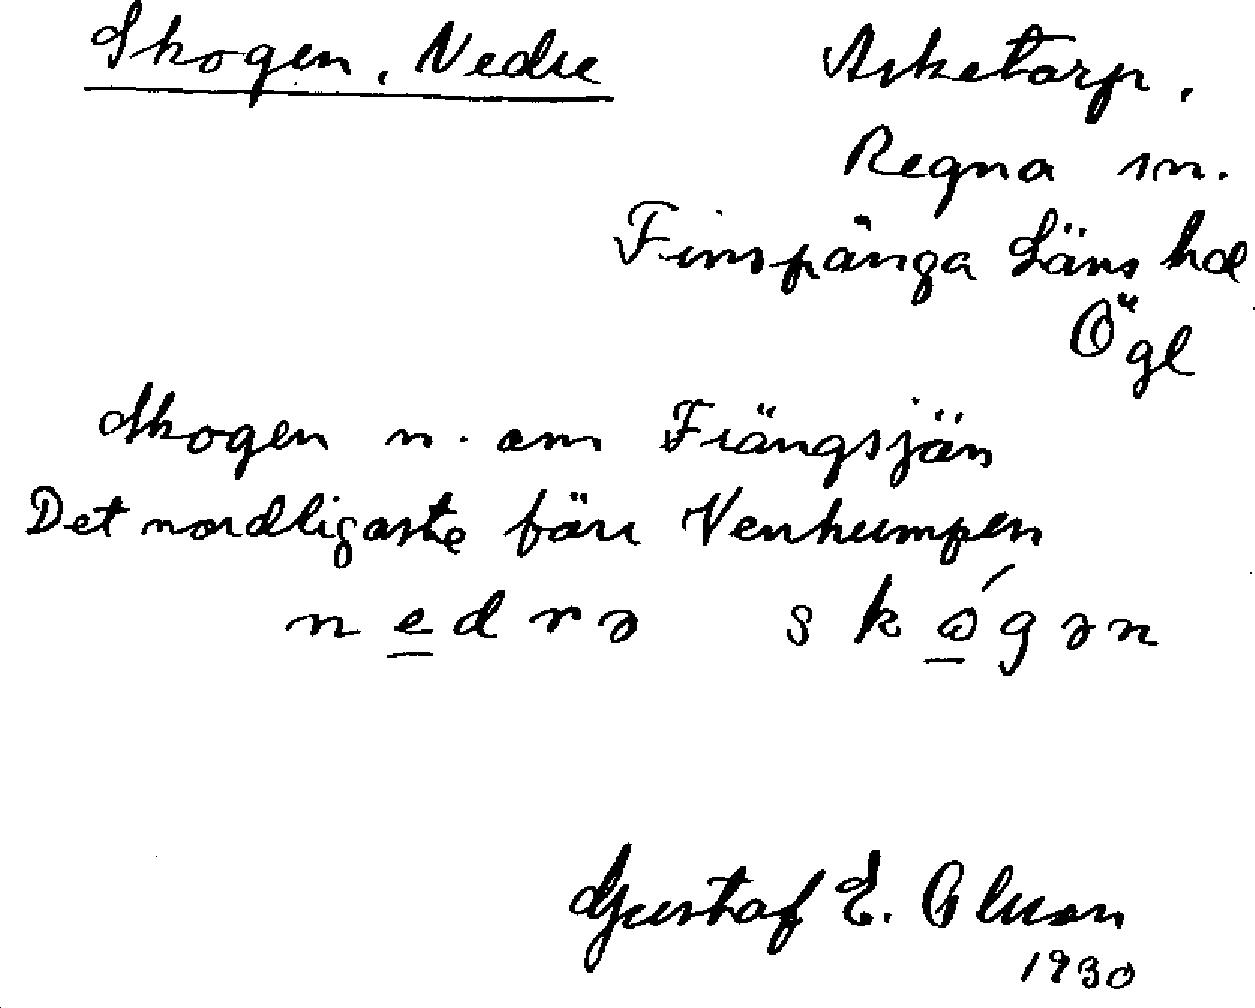 Skogen, Nedre
Asketorp.
Regna sn.
Finspånga Läns hd
Ögl
Skogen n. om Trängsjön
Det nordligaste före Venhumpen
nedrə skógən
Gustaf E. Olson
1930